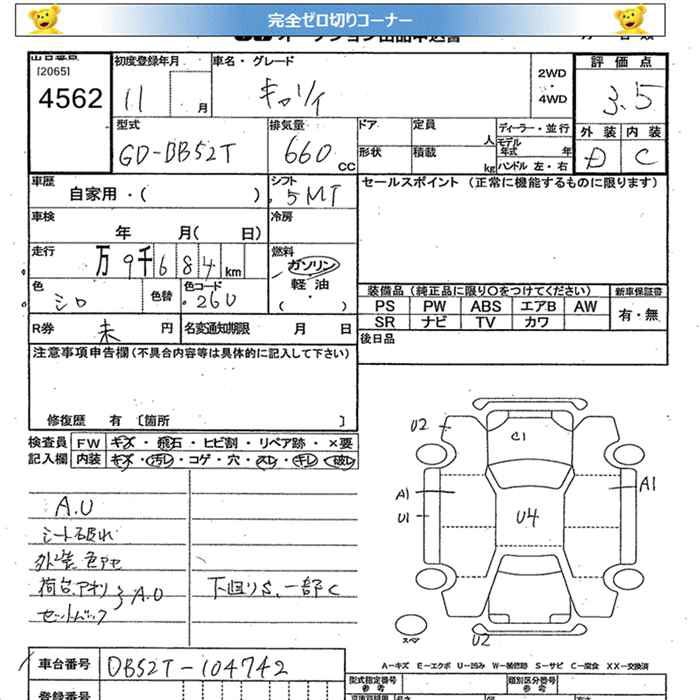 完全ゼロ切りコーナー
[2065]
4562
初度登録年月
11 月
車名・グレード
キャリィ
2WD
・
4WD
評価点
3.5
型式
GD-DB52T
排気量
660 CC
ドア
定員
人
形状
積載
kg
ディーラー・並行
モデル年式 年
ハンドル 左・右
外装
内装
D
C
車歴
自家用・( )
シフト
5MT
セールスポイント (正常に機能するものに限ります)
車検
年 月( 日)
冷房
走行
万 9千684 km
燃料
ガソリン
軽油
( )
色
シロ
色替
色コード
26U
装備品 (純正品に限り○をつけてください)
新車保証書
PS PW ABS エアB AW
SR ナビ TV カワ
有・無
R券
未 円
名変通知期限 月 日
後日品
注意事項申告欄(不具合内容等は具体的に記入して下さい)
修復歴 有 [箇所 ]
検査員 FW キズ・飛石・ヒビ割・リペア跡・×要
記入欄 内装 キズ・汚レ・コゲ・穴・スレ・キレ・破レ
A.U
シート破れ
外装色アセ
荷台、アオリ
セットバック
A.U
下廻りS、一部C
U2
C1
A1
U1
U4
A1
スペア
U2
車台番号
DB52T-104742
A-キズ E-エクボ U-凹み W-補修跡 S-サビ C-腐食 XX-交換済
登録番号
型式指定番号
参考
類別区分番号
参考